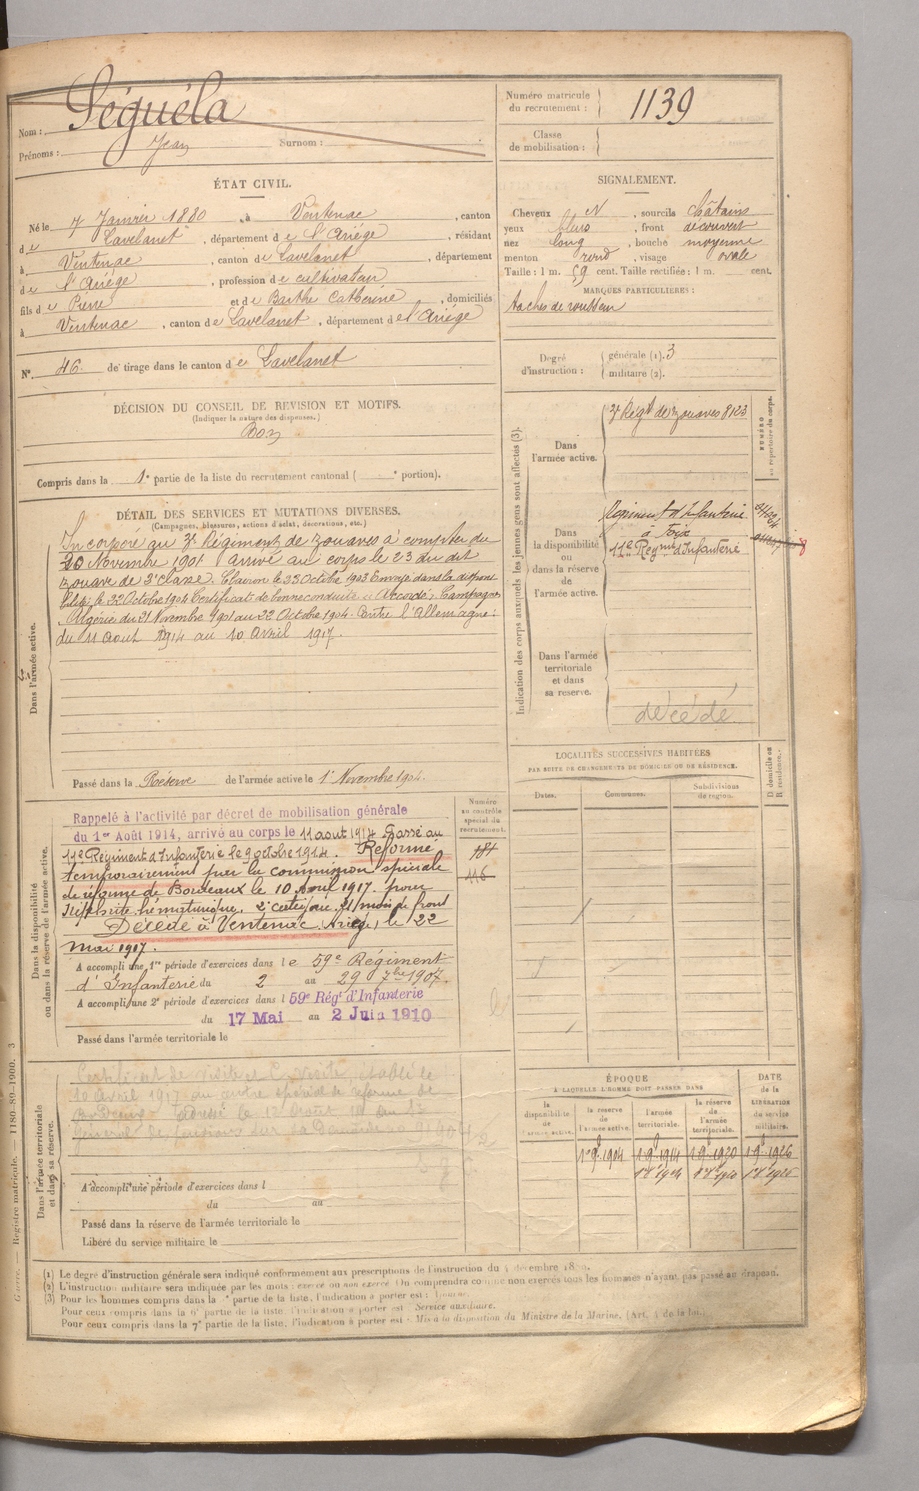 Nom : Séguéla
Prénoms : Jean Surnom :
Numéro matricule du recrutement : 1139
Classe de mobilisation :
ÉTAT CIVIL.
Né le 7 Janvier 1880, à Ventenac, canton
de Lavelanet, département de l'Ariége, résidant
à Ventenac, canton de Lavelanet, département
de l'Ariége, profession de cultivateur
fils de Pierre et de Barthe Catherine, domiciliés
à Ventenac, canton de Lavelanet, département de l'Ariége
N° 46. de tirage dans le canton de Lavelanet
DÉCISION DU CONSEIL DE REVISION ET MOTIFS.
(Indiquer la nature des dispenses.)
Bon
Compris dans la 1e partie de la liste du recrutement cantonal ( e portion).
SIGNALEMENT.
Cheveux N, sourcils châtains
yeux bleus, front découvert
nez long, bouche moyenne
menton rond, visage ovale
Taille : 1 m. 59 cent. Taille rectifiée : 1 m. cent.
MARQUES PARTICULIÈRES :
taches de rousseur
Degré d'instruction :
générale (1). 3
militaire (2).
DÉTAIL DES SERVICES ET MUTATIONS DIVERSES.
(Campagnes, blessures, actions d'éclat, décorations, etc.)
Dans l'armée active.
Incorporé au 3e Régiment de zouaves à compter du
20 Novembre 1901 Arrivé au corps le 23 du dit
zouave de 2e classe. Clairon le 25 Octobre 1903 Envoyé dans la disponi
bilité le 22 Octobre 1904 Certificat de bonne conduite "Accordé". Campagnes
Algérie du 21 Novembre 1901 au 22 Octobre 1904. Contre l'Allemagne :
du 11 Aout 1914 au 10 Avril 1917.
Passé dans la Réserve de l'armée active le 1er Novembre 1904.
Indication des corps auxquels les jeunes gens sont affectés (3).
NUMÉRO au répertoire du corps.
Dans l'armée active.
3e Régt de zouaves 8123
Dans la disponibilité ou dans la réserve de l'armée active.
Régiment d'Infanterie
à Foix
11e Régmt d'Infanterie
Dans l'armée territoriale et dans sa réserve.
décédé
LOCALITÉS SUCCESSIVES HABITÉES
PAR SUITE DE CHANGEMENTS DE DOMICILE OU DE RÉSIDENCE.
Dates. Communes. Subdivisions de région.
D. domicile ou R. résidence.
Dans la disponibilité ou dans la réserve de l'armée active.
Numéro au contrôle spécial du recrutement.
Rappelé à l'activité par décret de mobilisation générale
du 1er Août 1914, arrivé au corps le 11 aout 1914 Passé au
11e Régiment d'Infanterie le 9 octobre 1914. Réformé
temporairement par la commission spéciale
de réforme de Bordeaux le 10 Avril 1917. pour
Néphrite hématurique. 2e catégorie. 21 mois de front
Décédé à Ventenac (Ariége) le 22
mai 1917.
184
116
A accompli une 1re période d'exercices dans le 59e Régiment
d'Infanterie du 2 au 29 7bre 1907.
A accompli une 2e période d'exercices dans l 59e Régt d'Infanterie
du 17 Mai au 2 Juin 1910
Passé dans l'armée territoriale le
Dans l'armée territoriale et dans sa réserve.
Certificat de visite et C. visite établi le
10 avril 1917 au centre spécial de réforme de
Bordeaux
A accompli une période d'exercices dans l
du au
Passé dans la réserve de l'armée territoriale le
Libéré du service militaire le
ÉPOQUE
À LAQUELLE L'HOMME DOIT PASSER DANS
la disponibilité de l'armée active.
la réserve de l'armée active.
l'armée territoriale.
la réserve de l'armée territoriale.
DATE de la LIBÉRATION du service militaire.
1 9bre 1904 1-9-1914 1-9-1920 1-9-1926
1 8bre 1914 1 8bre 1920 1 8bre 1926
(1) Le degré d'instruction générale sera indiqué conformément aux prescriptions de l'instruction du décembre
(2) L'instruction militaire sera indiquée par les mots : exercé ou non exercé. On comprendra comme non exercés tous les hommes n'ayant pas passé au drapeau.
(3) Pour les hommes compris dans la partie de la liste, l'indication à porter est :
Pour ceux compris dans la 6e partie de la liste, l'indication à porter est : Service auxiliaire.
Pour ceux compris dans la 7e partie de la liste, l'indication à porter est : Mis à la disposition du Ministre de la Marine. (Art. 4 de la loi.)
Guerre. Registre matricule. — 1180-89-1900. 3